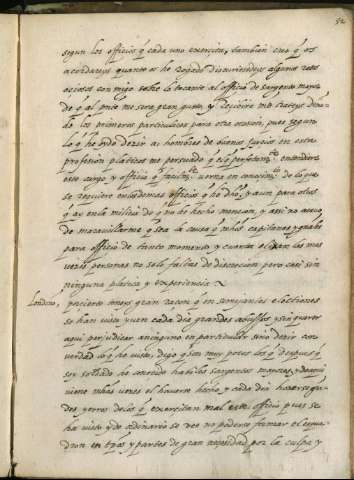 52
segun los officios q̃ cada uno exercita, tambien creo q̃ os
acordareys quanto os he rogado discurriesedes algunos ratos
ociosos con migo sobre lo tocante al officio de sargento mayor
de q̃ al pnte me sera gran gusto, y recibire md trateys dexan
do los primeros particulares para otra ocasion, pues segun
lo q̃ he oydo dezir a hombres de buenos juyzios en esta
profesion platicos me persuado q̃ el q̃ perfectamte entendiere
este cargo, y officio q̃ facilmte verna en conocimto de lo que
se requiere en los demas officios q̃ he dho, y aun para otros
q̃ ay en la milicia de q̃ no he hecho mencion, y assi no acavo
de maravillarme q̃ sea la causa q̃ muchos capitanes y grales
para officio de tanto momento y cuenta elixan las mas
vezes personas no solo faltas de discrecion pero casi sin
ninguna platica y experiencia
Londoño, pareceme teneys gran razon q̃ en semejantes electiones
se han visto y ven cada dia grandes abussos y sin querer
aqui perjudicar a ninguno en particular sino dezir con
verdad lo q̃ he visto, digo q̃ son muy pocos los q̃ despues q̃
soy soldado he conocido habiles sargentos mayores, y de aqui
viene muchas vezes el haverse hecho, y cada dia hazerse gran
des yerros de los q̃ exercitan mal este officio pues se
ha visto y de ordinario se ves no poderse formar el esqua
dron en tpos y partes de gran necesidad por la culpa y